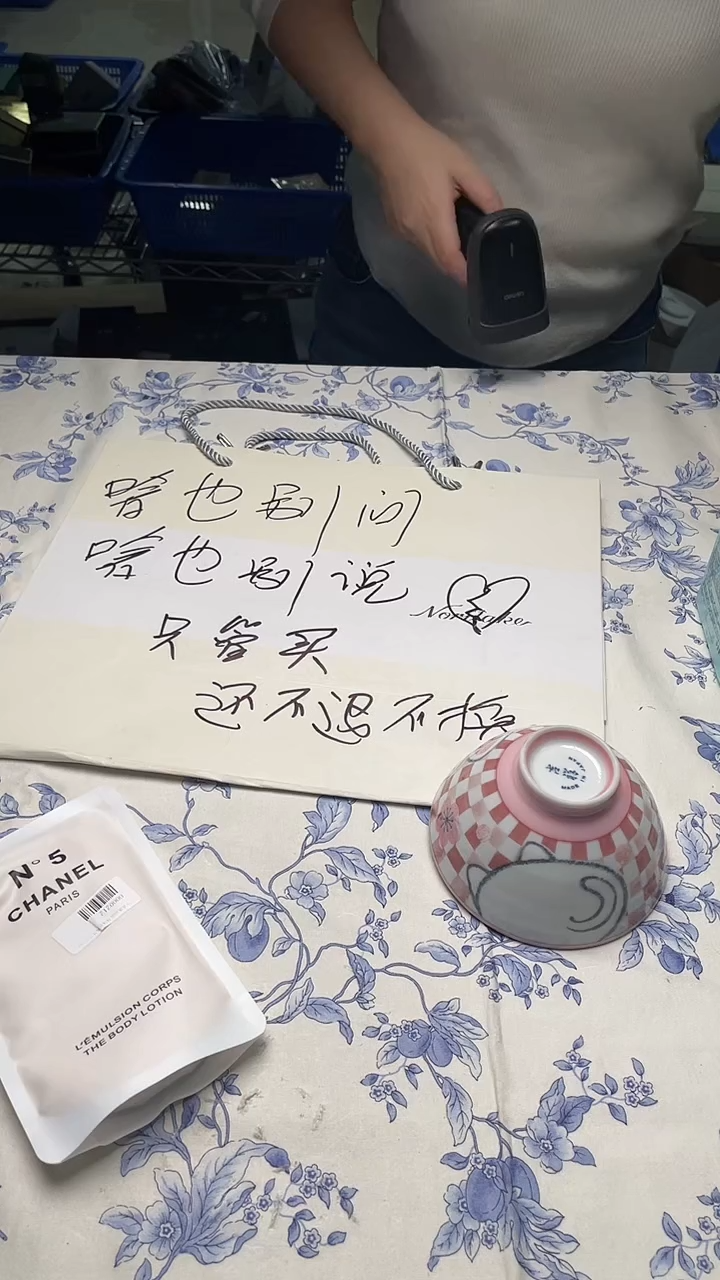 啥也别问
啥也别说
只管买
还不退不换
N°5
CHANEL
PARIS
L'ÉMULSION CORPS
THE BODY LOTION
MADE